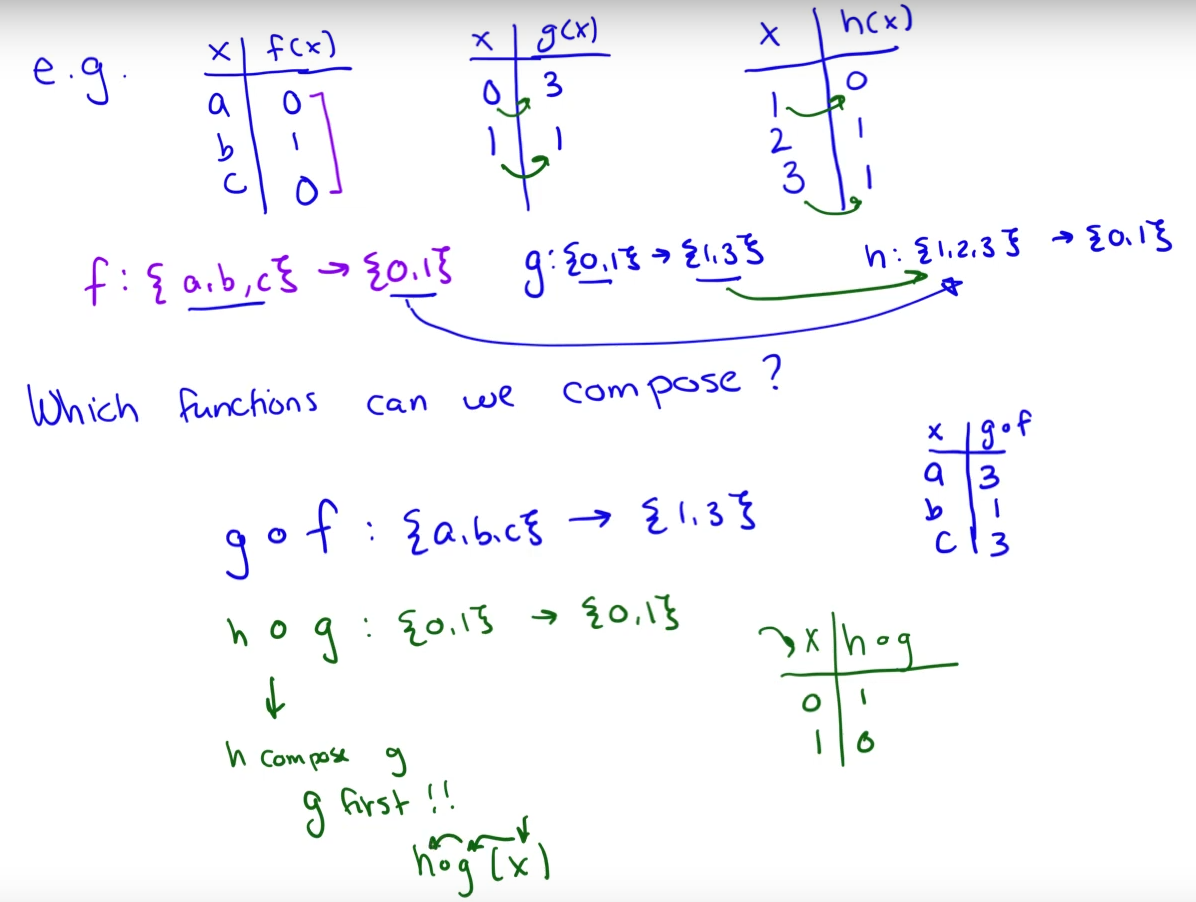 e.g.
x | f(x)
a | 0
b | 1
c | 0
x | g(x)
0 | 3
1 | 1
x | h(x)
1 | 0
2 | 1
3 | 1
f : {a,b,c} → {0,1}
g : {0,1} → {1,3}
h : {1,2,3} → {0,1}
Which functions can we compose ?
g ∘ f : {a,b,c} → {1,3}
x | g∘f
a | 3
b | 1
c | 3
h ∘ g : {0,1} → {0,1}
x | h∘g
0 | 1
1 | 0
↓
h compose g
g first !!
h∘g (x)